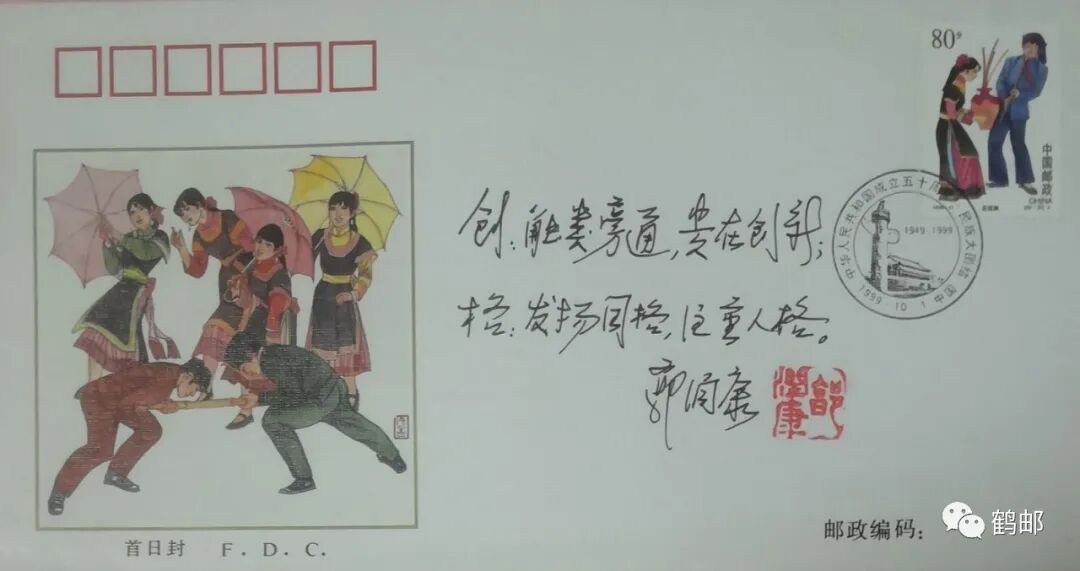 80分
中国邮政
CHINA
中华人民共和国成立五十周年 民族大团结
1949-1999
1999·10·1 中国
创:触类旁通,贵在创新;
格:发扬国格,注重人格。
郭润康
郭润康
首日封 F.D.C.
邮政编码:
鹤邮